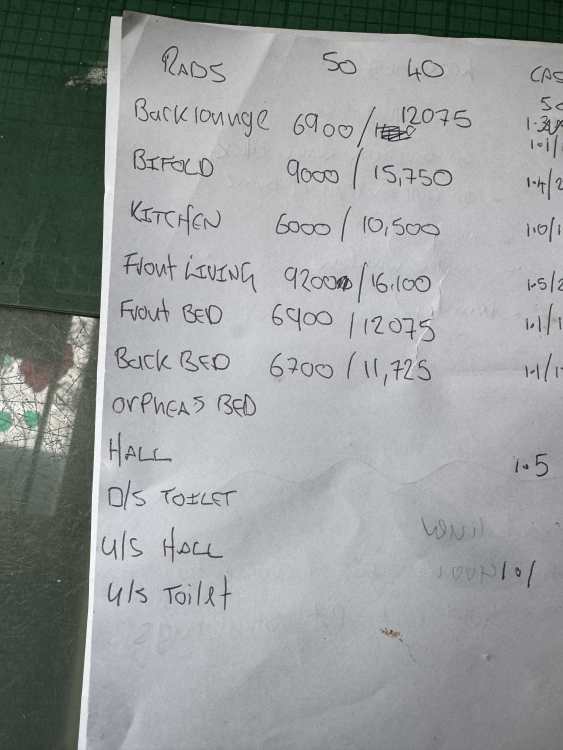 RADS 50 40 CAS
Back lounge 6900 / 12075 50
1.3
BIFOLD 9000 / 15,750 1.4/2
KITCHEN 6000 / 10,500 1.0/1
Front LIVING 9200 / 16,100 1.5/2
Front BED 6900 / 12075 1.1/1
Back BED 6700 / 11,725 1.1/1
ORPHEAS BED
HALL 1.5
D/S TOILET
U/S HALL 1.0/
U/S Toilet